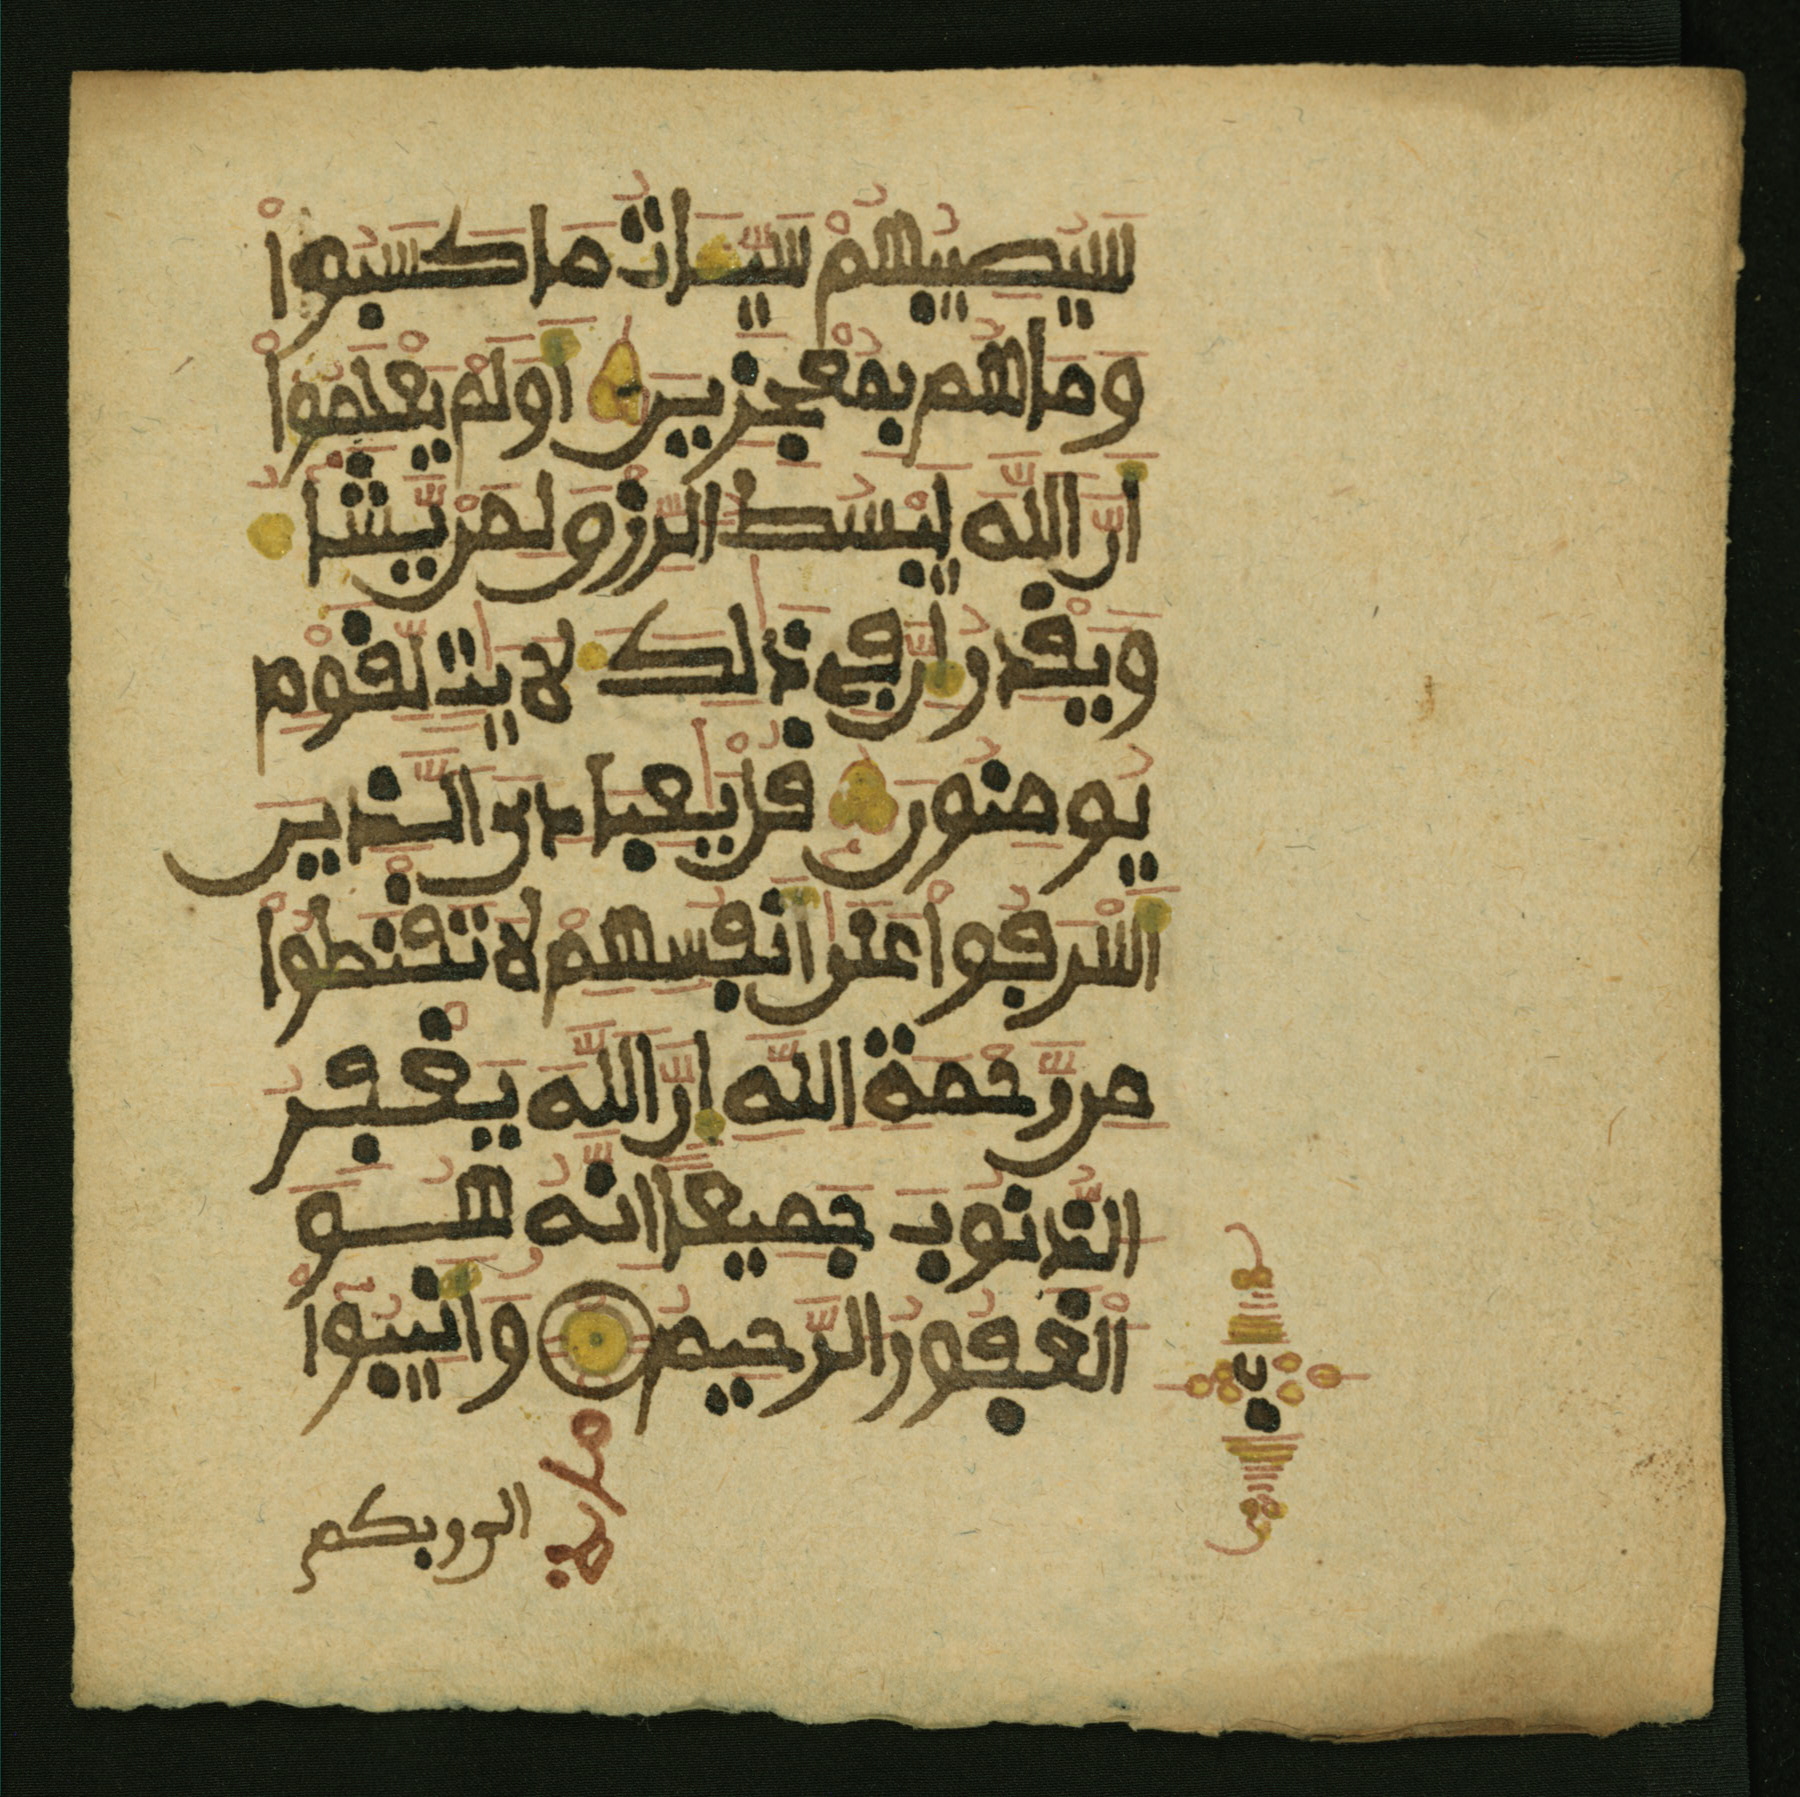 سَيُصِيبُهُمْ سَيِّـَٔاتُ مَا كَسَبُواْ
وَمَا هُم بِمُعْجِزِينَ أَوَلَمْ يَعْلَمُواْ
أَنَّ اَللَّهَ يَبْسُطُ اُلرِّزْقَ لِمَنْ يَّشَآءُ
وَيَقْدِرُ إِنَّ فِي ذَٰلِكَ لَأَيَٰتٍ لِّقَوْمٍ
يُومِنُونَ قُلْ يَٰعِبَادِيَ اَلَّذِينَ
أَسْرَفُواْ عَلَىٰٓ أَنفُسِهِمْ لَا تَقْنَطُواْ
مِن رَّحْمَةِ اِللَّهِ إِنَّ اَللَّهَ يَغْفِرُ
اُلذُّنُوبَ جَمِيعاً اِنَّهُۥ هُوَ
اَلْغَفُورُ اُلرَّحِيمُ وَأَنِيبُوٓاْ
الى ربكم